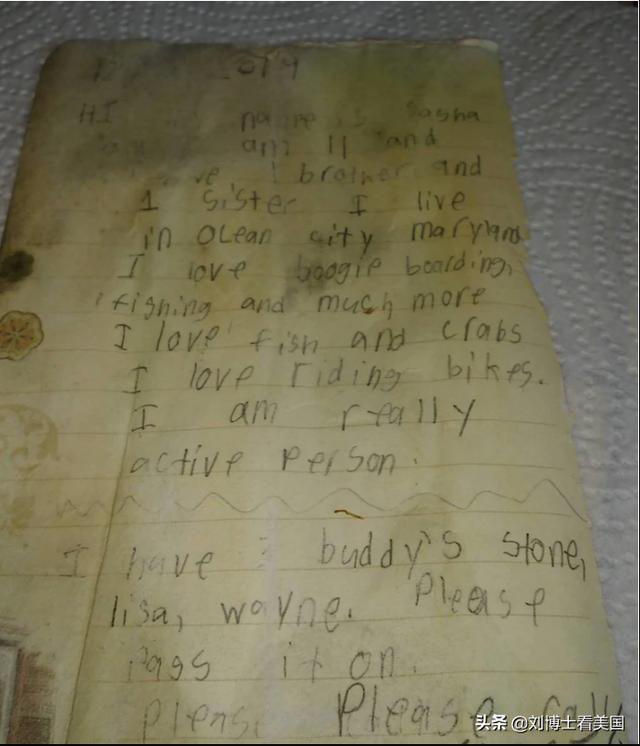 2014
HI name is Sasha
am 11 and
1 brother and
1 sister I live
in Ocean city maryland
I love boogie boarding,
fishing and much more
I love fish and crabs
I love riding bikes.
I am really
active person.
I have buddy's stone,
lisa, wayne. Please
Pass it on.
Please Please call
头条 @刘博士看美国